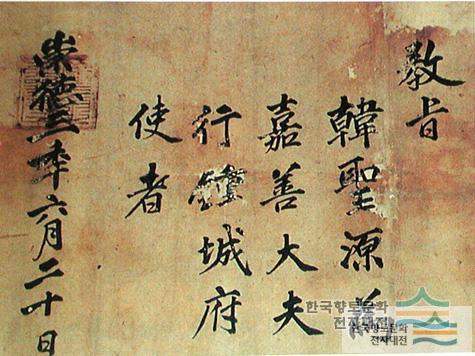 教旨
韓聖源
嘉善大夫
行城府
使者
崇德三秊六月二十日
한국향토문화
전자대전
한국향토문화
전자대전